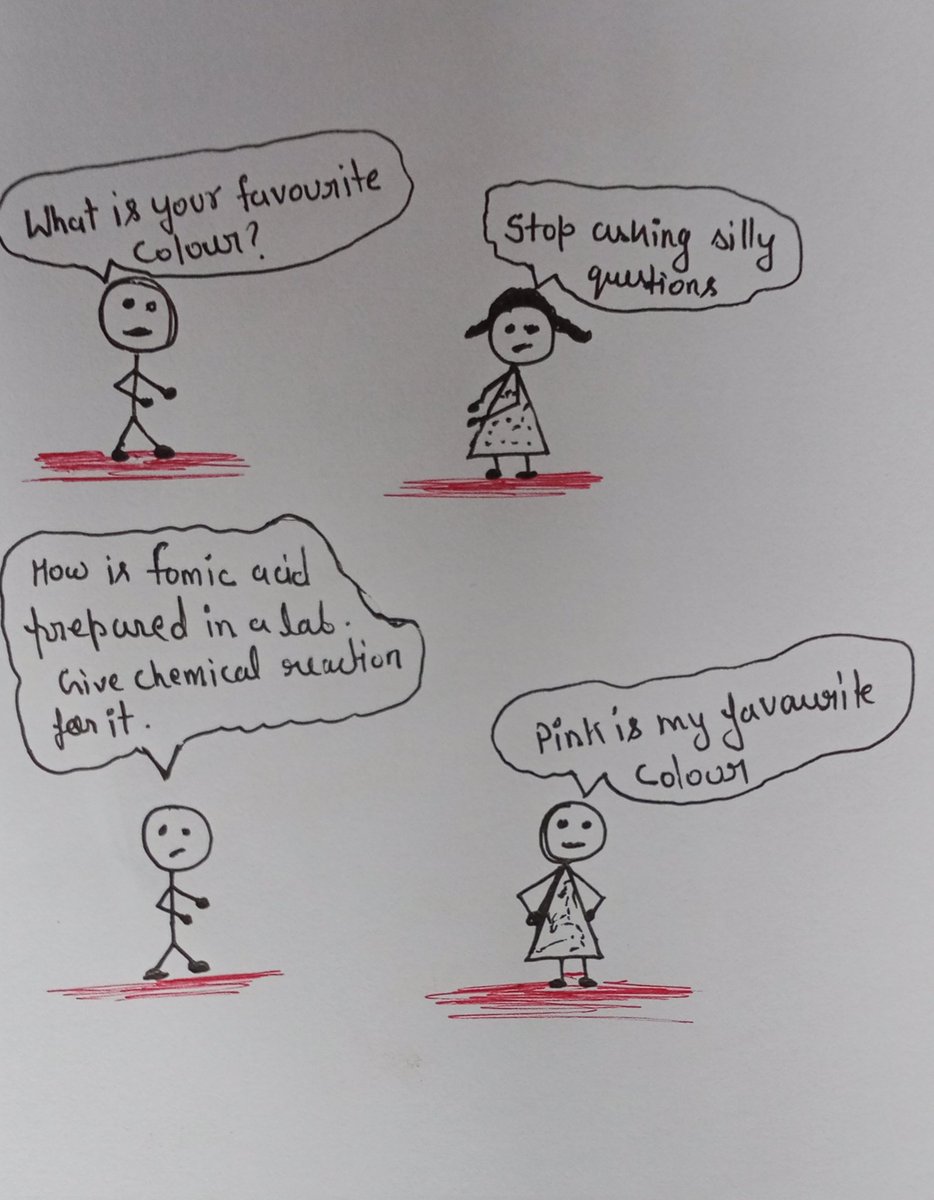 What is your favourite
colour?
Stop asking silly
questions
How is fomic acid
prepared in a lab.
Give chemical reaction
for it.
Pink is my favourite
colour